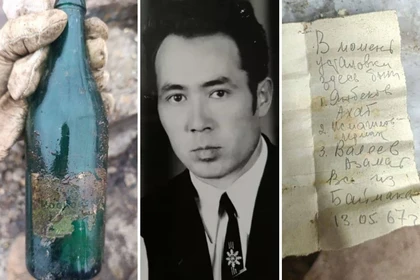 В момент
установки
здесь были
1. Янбеков
Ахат
2. Исмагилов
3. Валеев
Азамат
Все из
Баймака
13.05.67 г